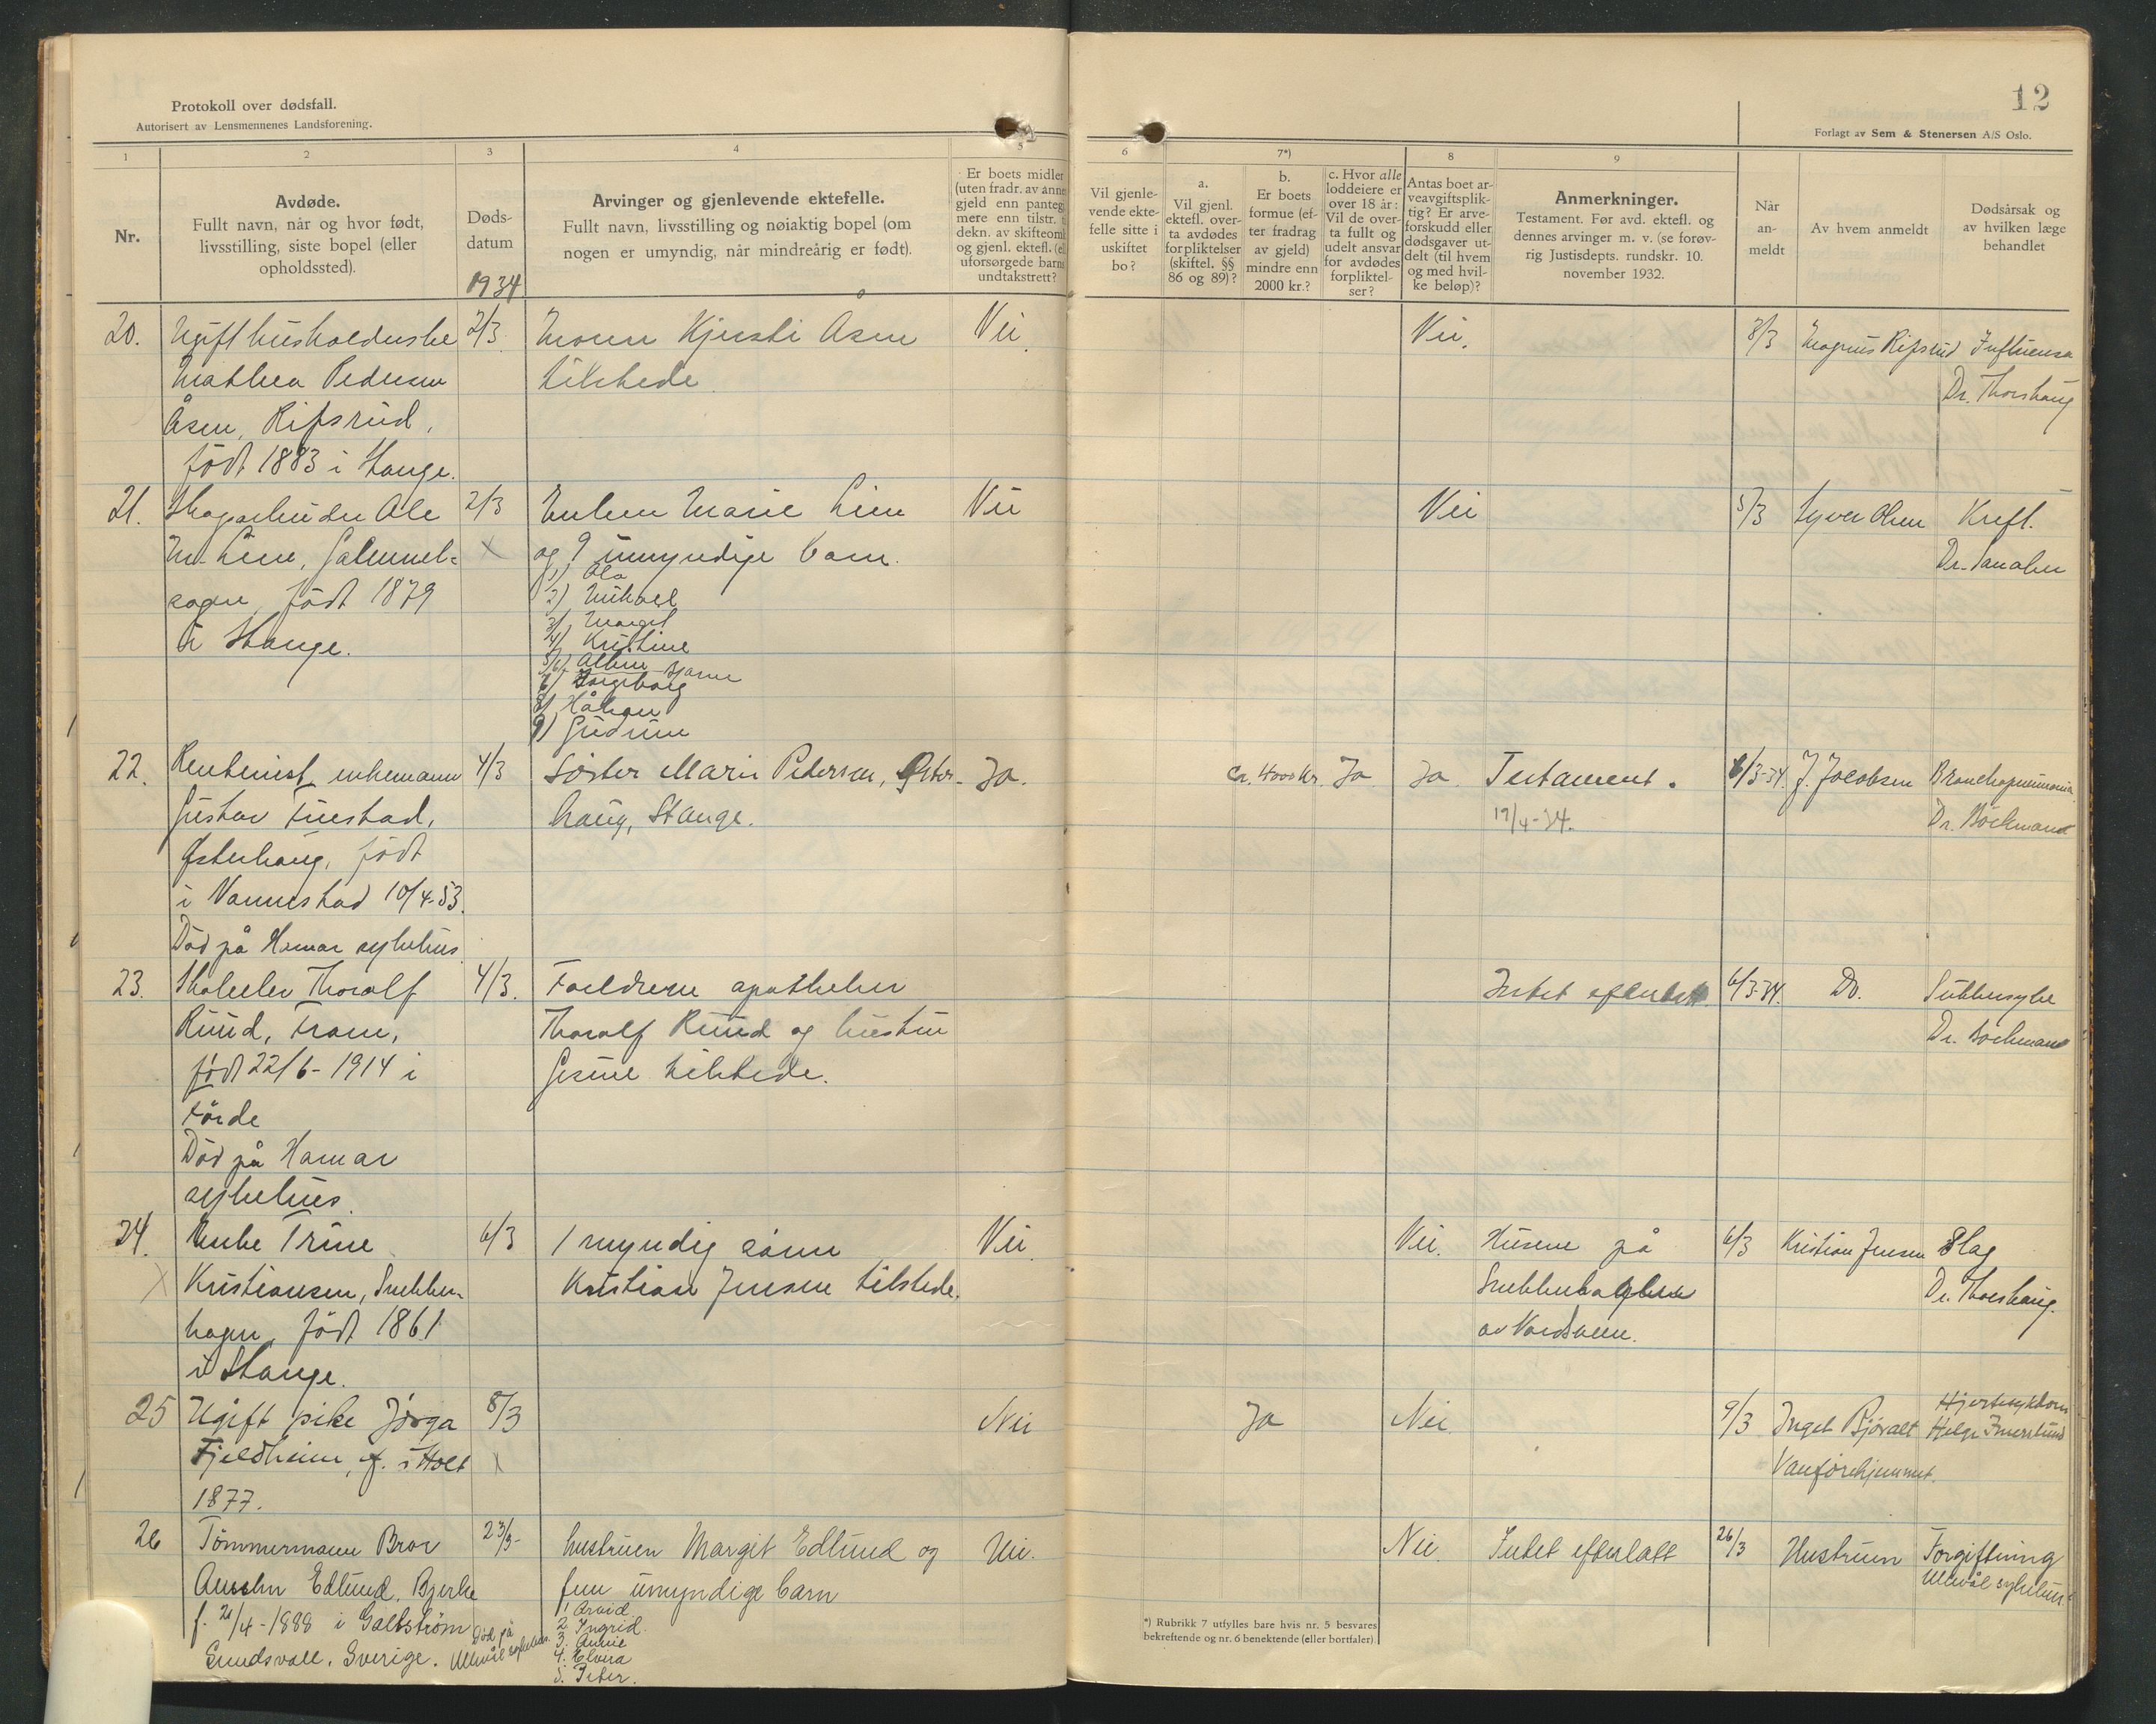 Protokoll over dødsfall.
Autorisert av Lensmennenes Landsforening.
12
Forlagt av Sem & Stenersen A/S Oslo.
1
2
3
4
5
6
7*)
8
9
Nr.
Avdøde.
Fullt navn, når og hvor født,
livsstilling, siste bopel (eller
opholdssted).
Døds-
datum
1934
Arvinger og gjenlevende ektefelle.
Fullt navn, livsstilling og nøiaktig bopel (om
nogen er umyndig, når mindreårig er født).
Er boets midler
(uten fradr. av anne
gjeld enn panteg
mere enn tilstr. t
dekn. av skifteomk
og gjenl. ektefl. (el
uforsørgede barns
undtakstrett?
Vil gjenle-
vende ekte-
felle sitte i
uskiftet
bo?
a.
Vil gjenl.
ektefl. over-
ta avdødes
forpliktelser
(skiftel. §§
86 og 89)?
b.
Er boets
formue (ef-
ter fradrag
av gjeld)
mindre enn
2000 kr.?
c. Hvor alle
loddeiere er
over 18 år:
Vil de over-
ta fullt og
udelt ansvar
for avdødes
forpliktel-
ser?
Antas boet ar-
veavgiftsplik-
tig? Er arve-
forskudd eller
dødsgaver ut-
delt (til hvem
og med hvil-
ke beløp)?
Anmerkninger.
Testament. Før avd. ektefl. og
dennes arvinger m. v. (se forøv-
rig Justisdepts. rundskr. 10.
november 1932.
Når
an-
meldt
Av hvem anmeldt
Dødsårsak og
av hvilken læge
behandlet
20. Ugift husholderske 2/3. Moren Kjersti Åsen Nei. Nei. 8/3 Magnus Ripsrud Influensa
Mathea Pedersen tilstede. Dr. Thorshaug
Åsen, Ripsrud,
født 1883 i Stange.
21. Skogarbeider Ole 2/3 Enken Marie Lien Nei Nei 5/3 Syver Olsen Kreft.
M. Lien, og 9 umyndige barn. Dr.
født 1879 1) Ola
i Stange. 2) Mikael
3) Margit
4) Kristine
5/6) Bjarne
7) Ingeborg
8) Håkon
9) Gudrun
22. Rentenist enkemann 4/3 Søster Marie Pedersen, Øster- Ja. ca. 4000 kr. Ja Ja Testament. 6/3-34. J. Jacobsen Bronchopneumonia
Gustav Tuestad, haug, Stange. 19/4-34. Dr. Böckmann
Østerhaug, født
i Vannestad 10/4-53.
Død på Hamar sykehus
23. Skoleelev Thoralf 4/3. Foreldrene apotheker Intet efterlatt 6/3-34. Do. Sukkersyke
Ruud, Fram, Thoralf Ruud og hustru Dr. Böckmann
født 22/6-1914 i Gesine tilstede.
Førde
Død på Hamar
sykehus.
24. Enke Trine 6/3 1 myndig sønn Nei Nei. Husene på 6/3 Kristian Jensen Slag
Kristiansen, Snekker- Kristian Jensen tilstede. Dr. Thorshaug.
hagen, født 1861
i Stange.
25 Ugift pike Jörga 8/3 Nei Ja Nei 9/3 Inget Bjøralt Hjertesykdom
Fjeldheim, f. i Holt Vanførehjemmet. Helge Imerslund
1877.
26 Tömmermann Bror 23/3- hustruen Margit Edlund og Nei. Nei. Intet efterlatt 26/3 Hustruen Forgiftning
Anselm Edlund, Bjerke fem umyndige barn Ullevål sykehus.
f. 21/4-1888 i Galtström 1. Arvid
Sundsvall, Sverige. Død på Ullevål sykehus. 2. Ingrid.
3. Annie
4. Elvira
5. Peter.
*) Rubrikk 7 utfylles bare hvis nr. 5 besvares
bekreftende og nr. 6 benektende (eller bortfaler).